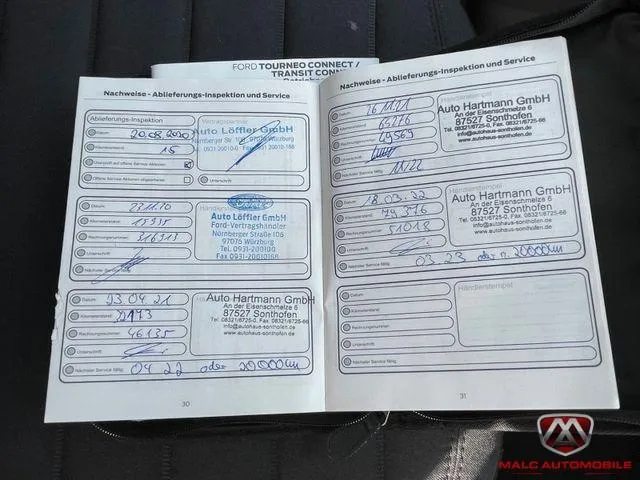 FORD TOURNEO CONNECT /
TRANSIT CONN
Nachweise - Ablieferungs-Inspektion und Service
Ablieferungs-Inspektion
Vertragspartner
Datum 20.08.2020
Auto Löffler GmbH
Kilometerstand 15
Nürnberger Str. 106, 97076 Würzburg
Überprüft auf offene Service-Aktionen
Offene Service-Aktionen abgearbeitet
Unterschrift
Datum
Ford
Kilometerstand 15935
Auto Löffler GmbH
Ford-Vertragshändler
Rechnungsnummer 316313
Nürnberger Straße 106
97076 Würzburg
Unterschrift
Tel. 0931-20010
Fax 0931-20010168
Nächster Service fällig
Datum 23 04 21
Auto Hartmann GmbH
Kilometerstand
An der Eisenschmelze 6
87527 Sonthofen
Rechnungsnummer 46135
Tel. 08321/6725-0, Fax. 08321/6725-66
info@autohaus-sonthofen.de
www.autohaus-sonthofen.de
Unterschrift
Nächster Service fällig 04 22 oder 20000km
30
Nachweise - Ablieferungs-Inspektion und Service
Händlerstempel
26 11 21
Auto Hartmann GmbH
65276
An der Eisenschmelze 6
87527 Sonthofen
49569
Tel. 08321/6725-0, Fax. 08321/6725-66
info@autohaus-sonthofen.de
www.autohaus-sonthofen.de
Unterschrift
Nächster Service fällig 11/22
Datum 18.03.22
Händlerstempel
Auto Hartmann GmbH
Kilometerstand 79376
An der Eisenschmelze 6
87527 Sonthofen
Rechnungsnummer 51018
Tel. 08321/6725-0, Fax. 08321/6725-66
info@autohaus-sonthofen.de
www.autohaus-sonthofen.de
Unterschrift
Nächster Service fällig 03 23 oder n. 20000km
Datum
Händlerstempel
Kilometerstand
Rechnungsnummer
Unterschrift
Nächster Service fällig
31
MALC AUTOMOBILE